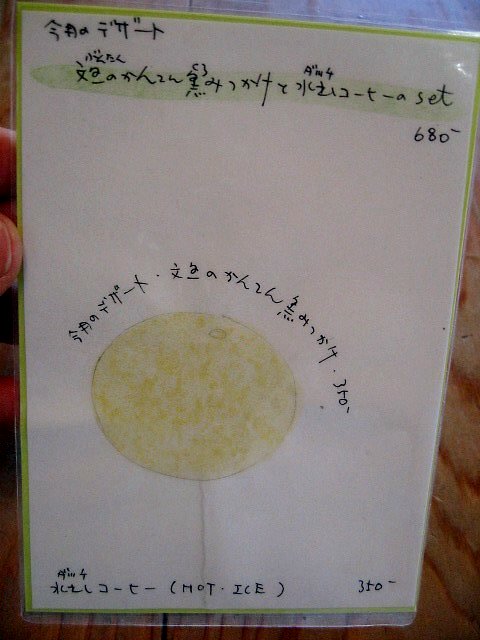 今月のデザート
ぶんたん くろ ダッチ
文旦のかんてん黒みつがけと水出しコーヒーの set
680-
今月のデザート・文旦のかんてん黒みつがけ・350-
ダッチ
水出しコーヒー (HOT・ICE) 350-